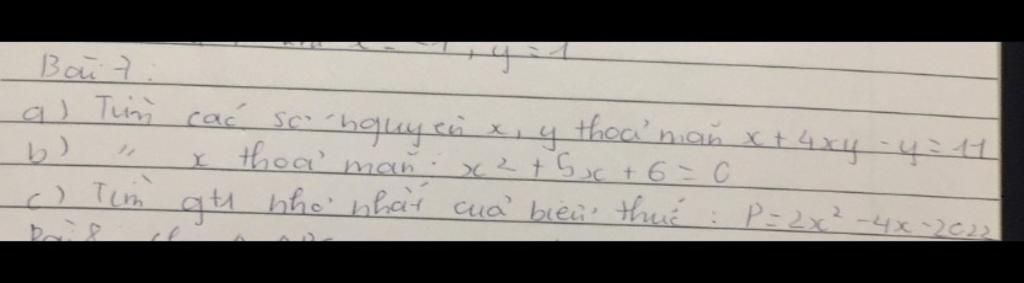 y = 1
Bài 7:
a) Tìm các số nguyên x, y thoả mãn x + 4xy - y = 11
b) " x thoả mãn: x2 + 5x + 6 = 0
c) Tìm gtr nhỏ nhất của biểu thức: P = 2x² - 4x - 2022